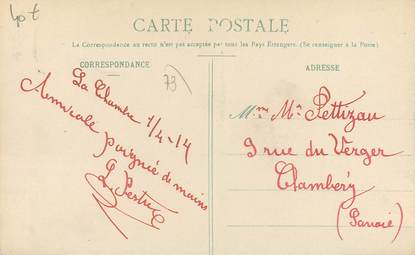 lot
CARTE POSTALE
La Correspondance au recto n'est pas acceptée par tous les Pays Etrangers. (Se renseigner à la Poste).
CORRESPONDANCE
73
La Chambre 1/4-14
Amicale poignée de mains
ADRESSE
Mme Mr Pettizau
9 rue du Verger
Chambéry
(Savoie)